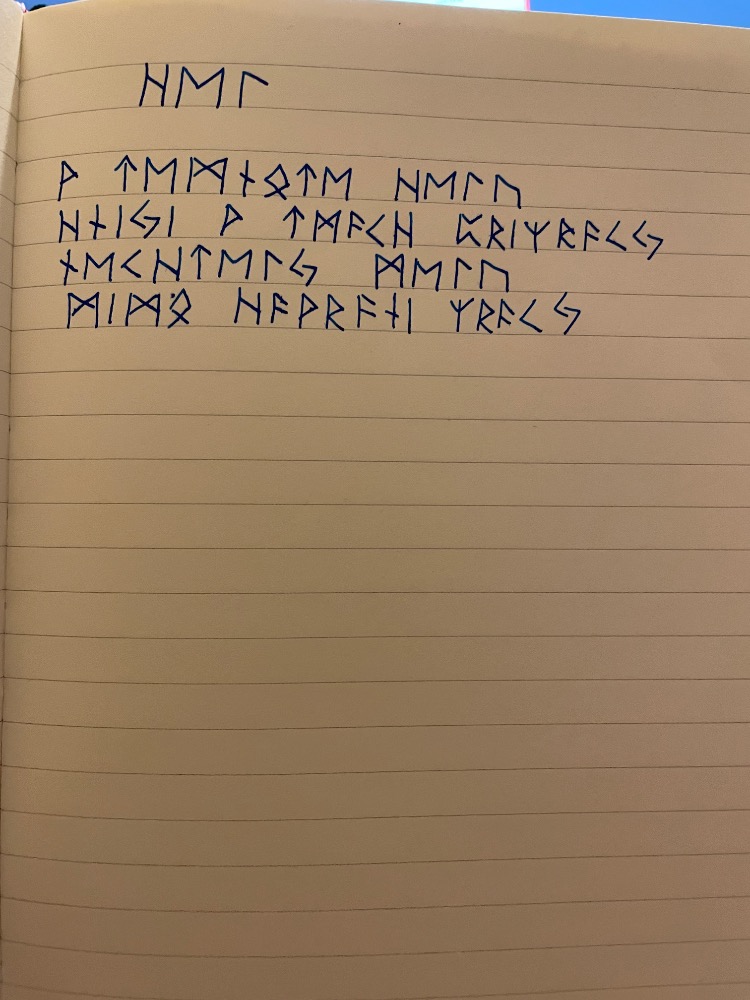 ᚺᛖᛚ
ᚹ ᛏᛖᛗᚾᛟᛏᛖ ᚺᛖᛚᚢ
ᚺᚾᛁᛃᛁ ᚹ ᛏᛗᚨᚲᚺ ᛈᚱᛁᛉᚱᚨᚲᛃ
ᚾᛖᚲᚺᛏᛖᛚᛃ ᛗᛖᛚᚢ
ᛗᛁᛗᛟ ᚺᚨᚹᚱᚨᚾᛁ ᛉᚱᚨᚲᛃ